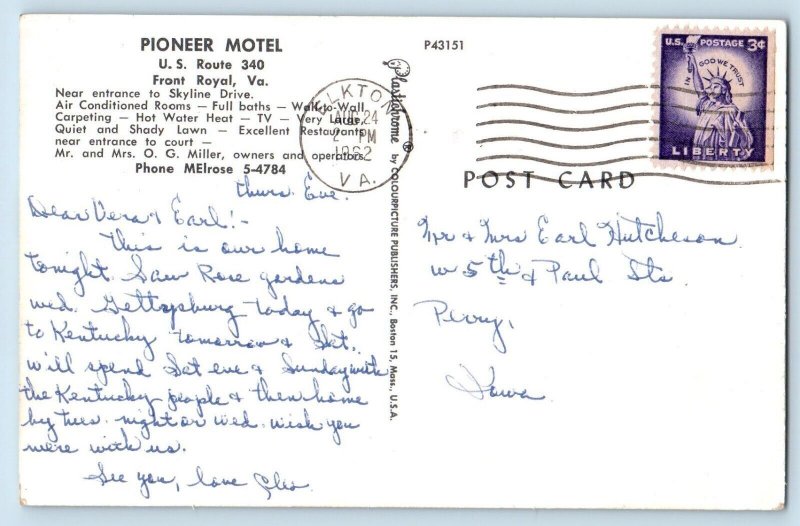 PIONEER MOTEL
U. S. Route 340
Front Royal, Va.
Near entrance to Skyline Drive.
Air Conditioned Rooms — Full baths — Wall-to-Wall
Carpeting — Hot Water Heat — TV — Very Large,
Quiet and Shady Lawn — Excellent Restaurants
near entrance to court —
Mr. and Mrs. O. G. Miller, owners and operators
Phone MElrose 5-4784
Thurs. Eve.
Dear Vera & Earl! -
This is our home
tonight. Saw Rose gardens
wed. Gettysburg today & go
to Kentucky tomorrow & Sat.
will spend Sat eve & Sunday with
the Kentucky people & then home
by tues. night or wed. wish you
were with us.
See you, love Cleo
Plastichrome ® by COLOURPICTURE PUBLISHERS, INC., Boston 15, Mass., U.S.A.
P43151
ELKTON
AUG 24
2 PM
1962
VA.
U.S. POSTAGE 3¢
IN GOD WE TRUST
LIBERTY
POST CARD
Mr & Mrs Earl Hutcheson
W 5th & Paul Sts
Perry,
Iowa